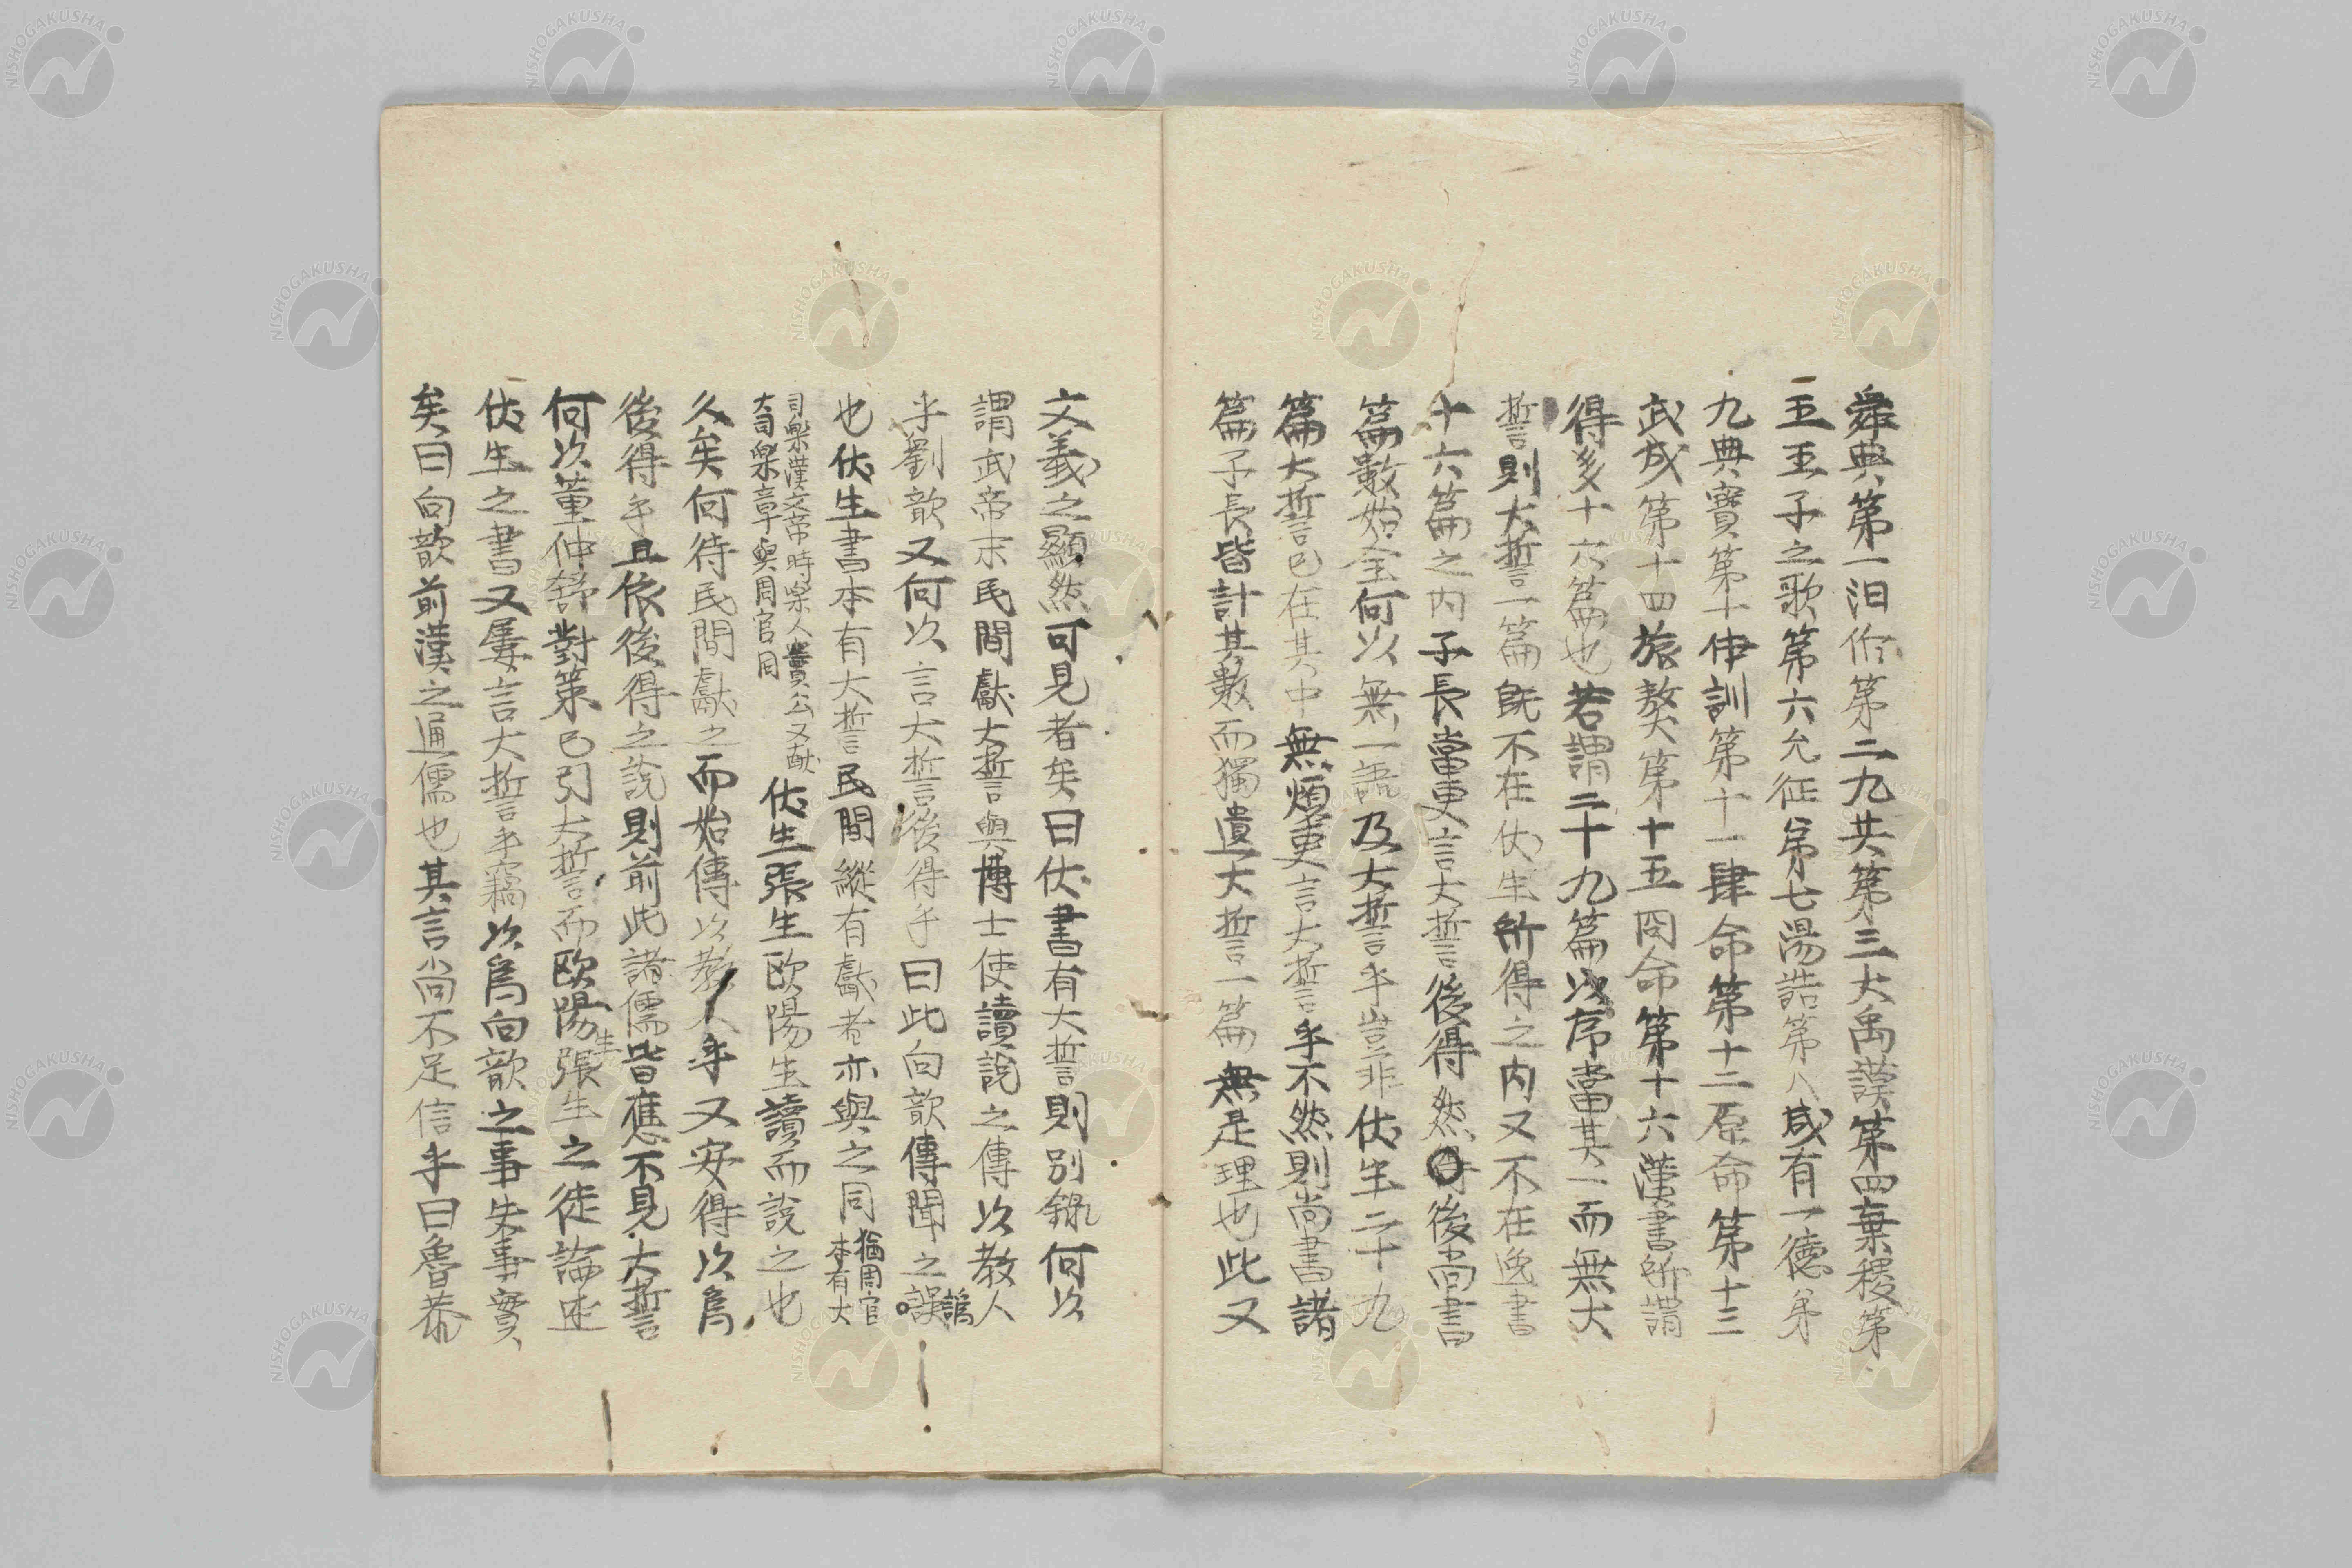 舜典第一汨作第二九共第三大禹謨第四棄稷第
五五子之歌第六允征第七湯誥第八咸有一德第
九典寶第十伊訓第十一肆命第十二原命第十三
武成第十四旅獒第十五冏命第十六漢書所謂
得多十六篇也若謂二十九篇以序當其一而無大
誓則大誓一篇既不在伏生所得之内又不在逸書
十六篇之内子長當更言大誓後得然後尚書
篇數始全何以無一語及大誓乎豈非伏生二十九
篇大誓已在其中無煩更言大誓乎不然則尚書諸
篇子長皆計其數而獨遺大誓一篇無是理也此又
文義之顯然可見者矣曰伏書有大誓則別錄何以
謂武帝末民間獻大誓與博士使讀說之傳以教人
乎劉歆又何以言大誓後得乎曰此向歆傳聞之誤
譌
也伏生書本有大誓民間縱有獻者亦與之同
猶周官
本有大
司樂漢文帝時樂人竇公又献
大司樂章與周官同
伏生張生歐陽生讀而說之也
久矣何待民間獻之而始傳以教人乎又安得以爲
後得乎且依後得之說則前此諸儒皆應不見大誓
何以董仲舒對策已引大誓而歐陽張生之徒論述
生
伏生之書又屢言大誓乎竊以爲向歆之事失事實
矣曰向歆前漢之通儒也其言尚不足信乎曰魯恭
NISHOGAKUSHA